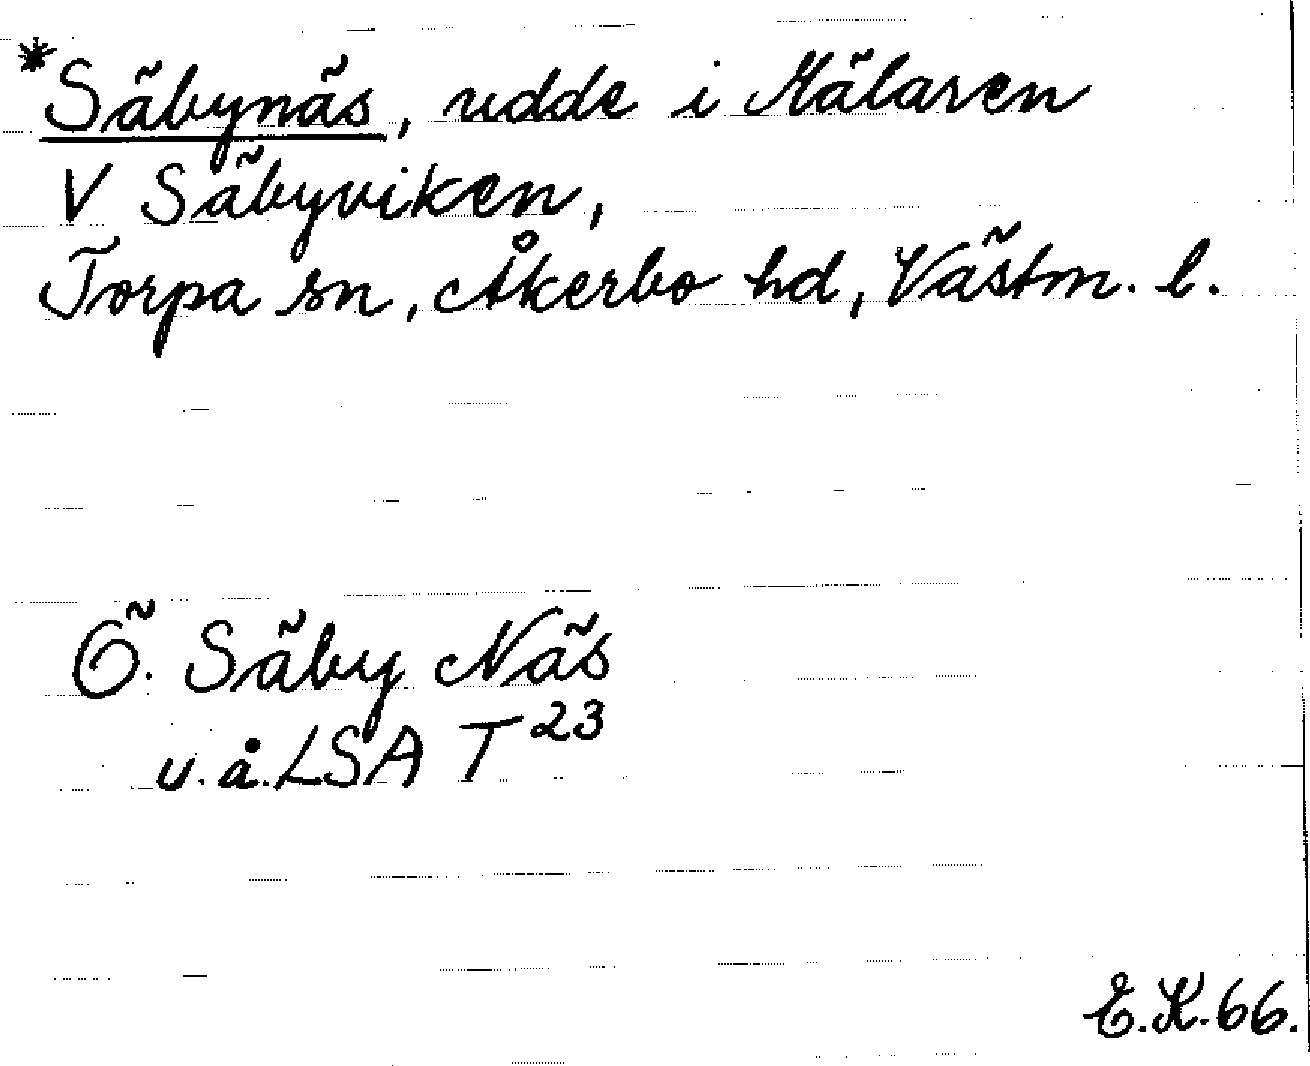 *Säbynäs, udde i Mälaren
V Säbyviken,
Torpa sn, Åkerbo hd, Västm. l.
Ö. Säby Näs
u. å. LSA T 23
E.K. 66.